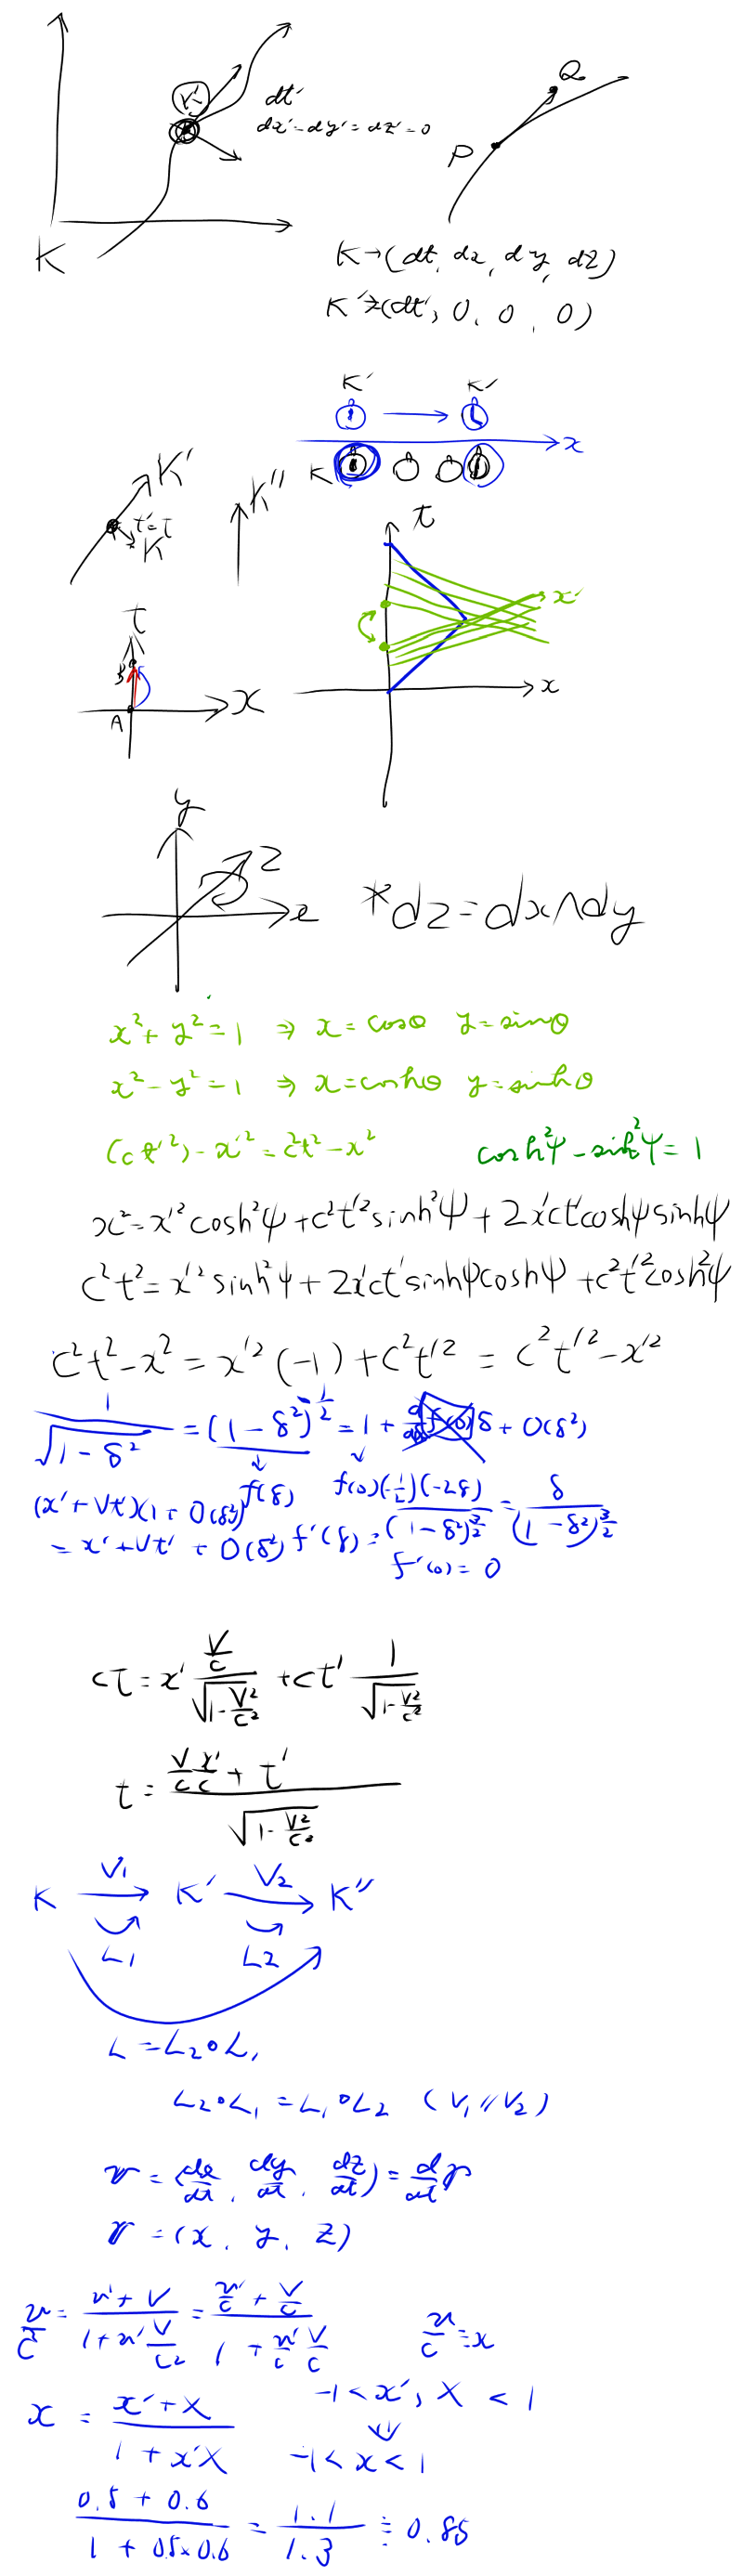 K'
dt'
dx'=dy'=dz'=0
K
Q
P
K→(dt, dx, dy, dz)
K'→(dt', 0, 0, 0)
K' K'
x
K
K'
t'=τ
K
K''
t
x'
x
t
B
A
x
y
z
x
*dz=dx∧dy
x²+y²=1 ⇒ x=cosθ y=sinθ
x²-y²=1 ⇒ x=coshθ y=sinhθ
(ct'²)-x'²=c²t²-x²
cosh²ψ-sinh²ψ=1
x²=x'²cosh²ψ+c²t'²sinh²ψ+2x'ct'coshψsinhψ
c²t²=x'²sinh²ψ+2x'ct'sinhψcoshψ+c²t'²cosh²ψ
c²t²-x²=x'²(-1)+c²t'²=c²t'²-x'²
1/√(1-δ²) = (1-δ²)^(-1/2) = 1 + δ + O(δ²)
f(δ) f(0)
(x'+Vt')(1+O(δ²))
=x'+Vt'+O(δ²)
f'(δ)=(-1/2)(-2δ)/(1-δ²)^(3/2)=δ/(1-δ²)^(3/2)
f'(0)=0
ct=x' (V/c)/√(1-V²/c²) +ct' 1/√(1-V²/c²)
t=(V/c x'/c + t')/√(1-V²/c²)
K V₁→ K' V₂→ K''
L1 L2
L=L₂∘L₁
L₂∘L₁=L₁∘L₂ (V₁//V₂)
v=(dx/dt, dy/dt, dz/dt)=d/dt r
r=(x, y, z)
v/c=(v'+V)/(1+v' V/c²)=(v'/c+V/c)/(1+v'/c V/c) v/c=x
x=(x'+X)/(1+x'X) -1<x', X<1
⇓
-1<x<1
(0.5+0.6)/(1+0.5×0.6)=1.1/1.3≒0.85